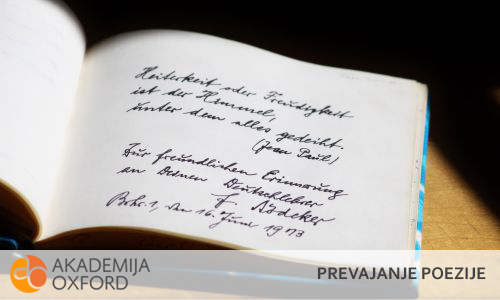 Heiterkeit oder Freudigkeit
ist der Himmel,
unter dem alles gedeiht.
(Jean Paul)
Zur freundlichen Erinnerung
an Deinen Deutschlehrer
F. Bödeker
den 16. Juni 1973
AKADEMIJA
OXFORD
PREVAJANJE POEZIJE